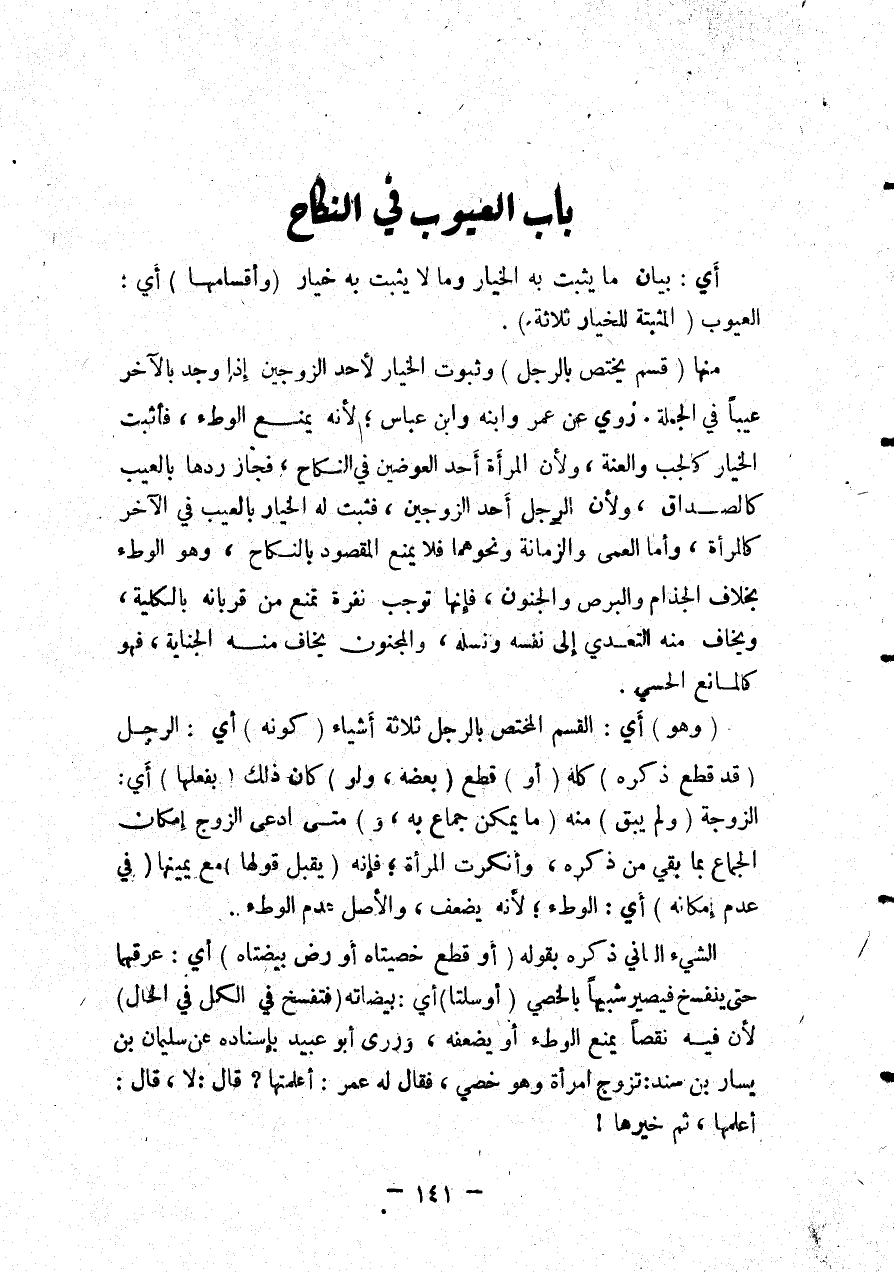 باب العيوب في النكاح
أي : بيان ما يثبت به الخيار وما لا يثبت به خيار ( وأقسامها ) أي :
العيوب ( المثبتة للخيار ثلاثة ) .
منها ( قسم يختص بالرجل ) وثبوت الخيار لأحد الزوجين إذا وجد بالآخر
عيباً في الجملة . رُوي عن عمر وابنه وابن عباس ؛ لأنه يمنع الوطء ، فأثبت
الخيار كالجب والعنة ، ولأن المرأة أحد العوضين في النكاح ، فجاز ردها بالعيب
كالصداق ، ولأن الرجل أحد الزوجين ، فثبت له الخيار بالعيب في الآخر
كالمرأة ، وأما العمى والزمانة ونحوهما فلا يمنع المقصود بالنكاح ، وهو الوطء
بخلاف الجذام والبرص والجنون ، فإنها توجب نفرة تمنع من قربانه بالكلية ،
ويخاف منه التعدي إلى نفسه ونسله ، والمجنون يخاف منه الجناية ، فهو
كالمانع الحسي .
( وهو ) أي : القسم المختص بالرجل ثلاثة أشياء ( كونه ) أي : الرجل
( قد قطع ذكره ) كله ( أو ) قطع ( بعضه ، ولو ) كان ذلك ( بفعلها ) أي :
الزوجة ( ولم يبق ) منه ( ما يمكن جماع به ، و ) متى ادعى الزوج إمكان
الجماع بما بقي من ذكره ، وأنكرت المرأة ؛ فإنه ( يقبل قولها ) مع يمينها ( في
عدم إمكانه ) أي : الوطء ؛ لأنه يضعف ، والأصل عدم الوطء ..
الشيء الثاني ذكره بقوله ( أو قطع خصيتاه أو رض بيضتاه ) أي : عرقها
حتى ينفسخ فيصير شبيهاً بالخصي ( أو سلتا ) أي : بيضاته ( فتفسخ في الكل في الحال )
لأن فيه نقصاً يمنع الوطء أو يضعفه ، وروى أبو عبيد بإسناده عن سليمان بن
يسار بن سند : تزوج امرأة وهو خصي ، فقال له عمر : أعلمتها ؟ قال : لا ، قال :
أعلمها ، ثم خيرها !
- ١٤١ -